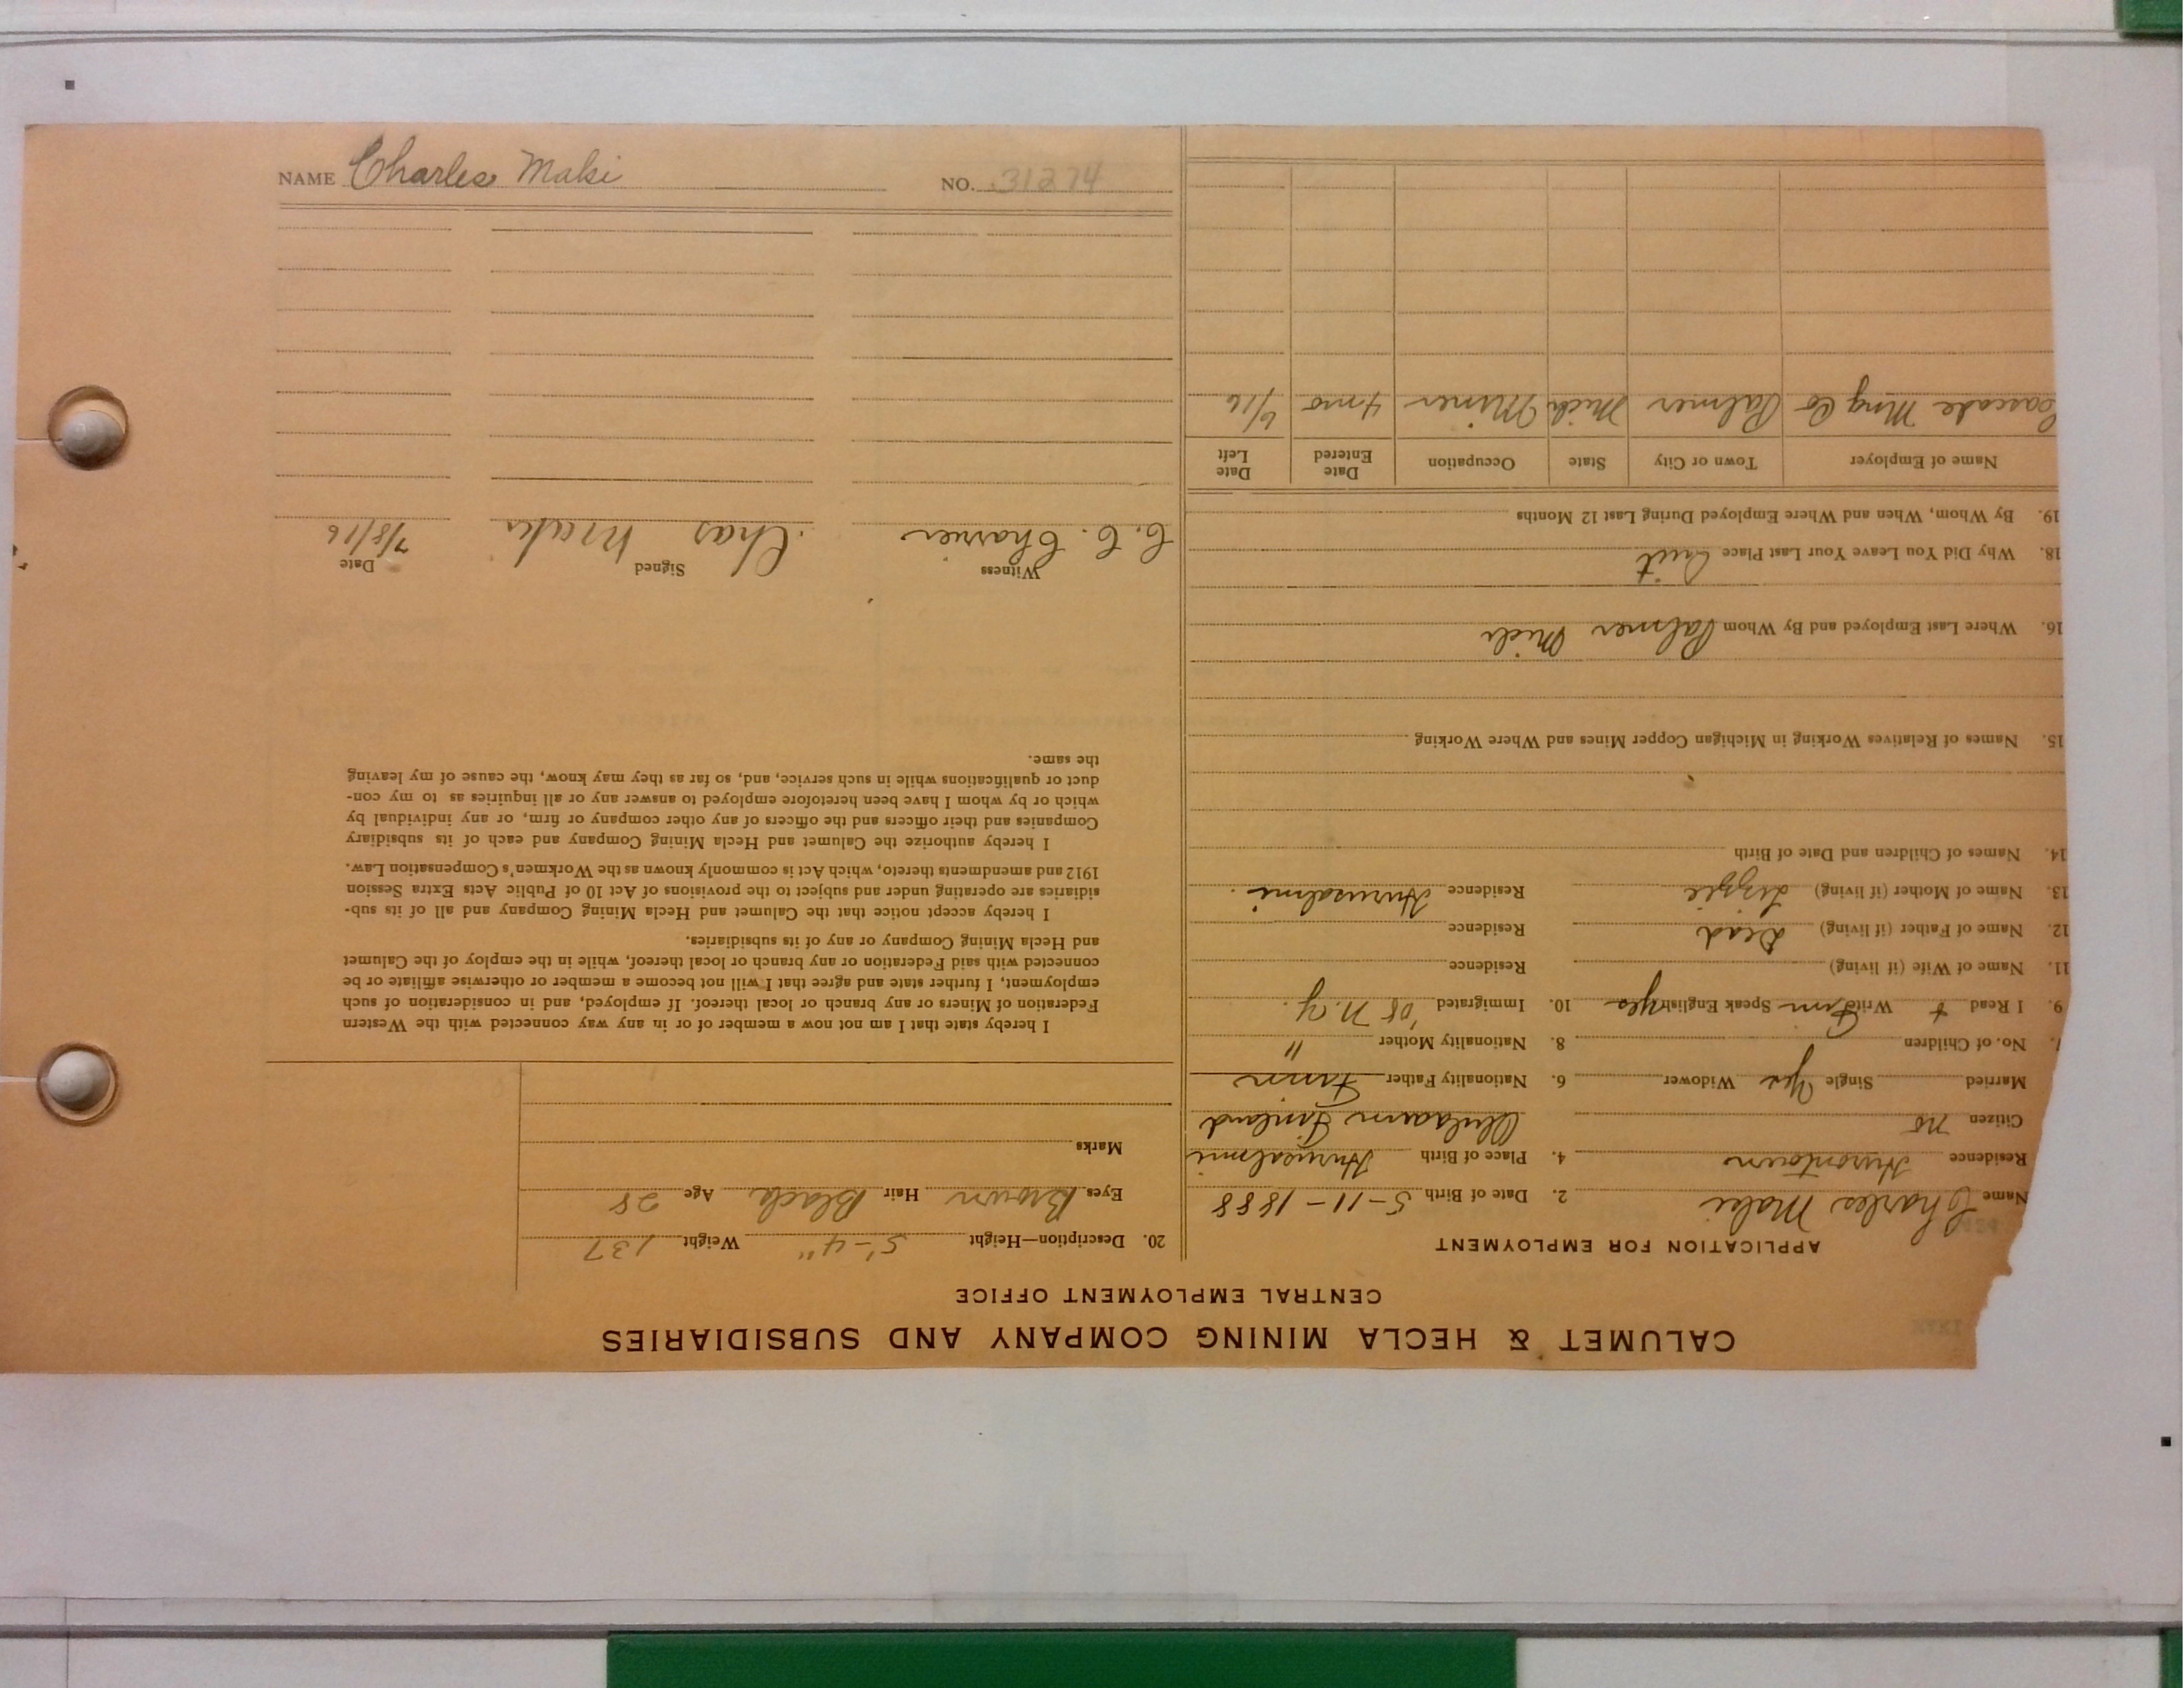 NAME Charles Maki NO. 31274
CALUMET & HECLA MINING COMPANY AND SUBSIDIARIES
CENTRAL EMPLOYMENT OFFICE
APPLICATION FOR EMPLOYMENT
Name Charles Maki 2. Date of Birth 5-11-1888
Residence Hurontown 4. Place of Birth
Citizen no Finland
Married Single Yes Widower 6. Nationality Father Finn
7. No. of Children 8. Nationality Mother "
9. I Read + Write Finn Speak English yes 10. Immigrated '08 N.Y.
11. Name of Wife (if living) Residence
12. Name of Father (if living) Dead Residence
13. Name of Mother (if living) Lizzie Residence
14. Names of Children and Date of Birth
15. Names of Relatives Working in Michigan Copper Mines and Where Working
16. Where Last Employed and By Whom Palmer Mich
18. Why Did You Leave Your Last Place Quit
19. By Whom, When and Where Employed During Last 12 Months
Name of Employer Town or City State Occupation Date Entered Date Left
Cascade Mng Co Palmer Mich Miner 4 mo 6/16
20. Description—Height 5'-4" Weight 137
Eyes Brown Hair Black Age 28
Marks
I hereby state that I am not now a member of or in any way connected with the Western
Federation of Miners or any branch or local thereof. If employed, and in consideration of such
employment, I further state and agree that I will not become a member or otherwise affiliate or be
connected with said Federation or any branch or local thereof, while in the employ of the Calumet
and Hecla Mining Company or any of its subsidiaries.
I hereby accept notice that the Calumet and Hecla Mining Company and all of its sub-
sidiaries are operating under and subject to the provisions of Act 10 of Public Acts Extra Session
1912 and amendments thereto, which Act is commonly known as the Workmen's Compensation Law.
I hereby authorize the Calumet and Hecla Mining Company and each of its subsidiary
Companies and their officers and the officers of any other company or firm, or any individual by
which or by whom I have been heretofore employed to answer any or all inquiries as to my con-
duct or qualifications while in such service, and, so far as they may know, the cause of my leaving
the same.
Witness Signed Date
C. C. Charier Chas Maki 7/8/16